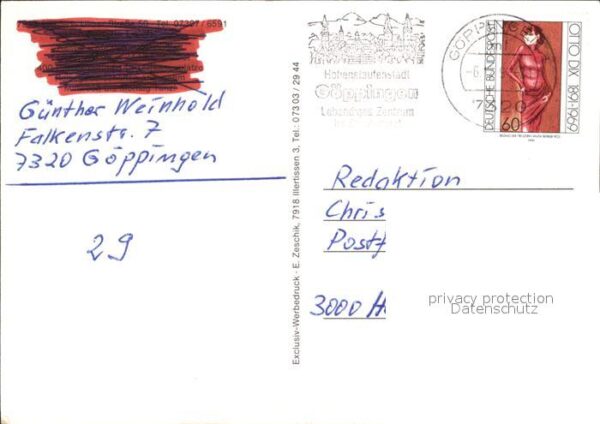 Straße 50 Tel. 07307/6591
Günther Weinhold
Falkenstr. 7
7320 Göppingen
29
Exclusiv-Werbedruck · E. Zeschik, 7918 Illertissen 3, Tel.: 07303 / 29 44
Hohenstaufenstadt
Göppingen
Lebendiges Zentrum
GÖPPINGEN
7320
DEUTSCHE BUNDESPOST
60
OTTO DIX 1891-1969
Redaktion
Chris
Postf
3000 H
privacy protection
Datenschutz